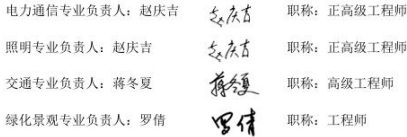 电力通信专业负责人：赵庆吉 赵庆吉 职称：正高级工程师
照明专业负责人：赵庆吉 赵庆吉 职称：正高级工程师
交通专业负责人：蒋冬夏 蒋冬夏 职称：高级工程师
绿化景观专业负责人：罗倩 罗倩 职称：工程师